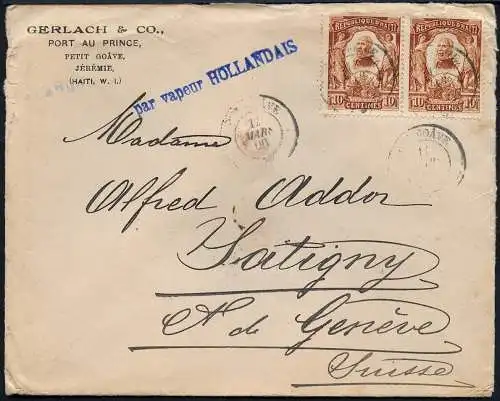 GERLACH & CO.,
PORT AU PRINCE,
PETIT GOÂVE,
JÉRÉMIE,
(HAITI, W. I.)
par vapeur HOLLANDAIS
REPUBLIQUE D'HAITI
10 CENTIMES 10
REPUBLIQUE D'HAITI
10 CENTIMES 10
GOÂVE
MARS
GOÂVE
Madame
Alfred Addor
Satigny
Ct de Genève
Suisse